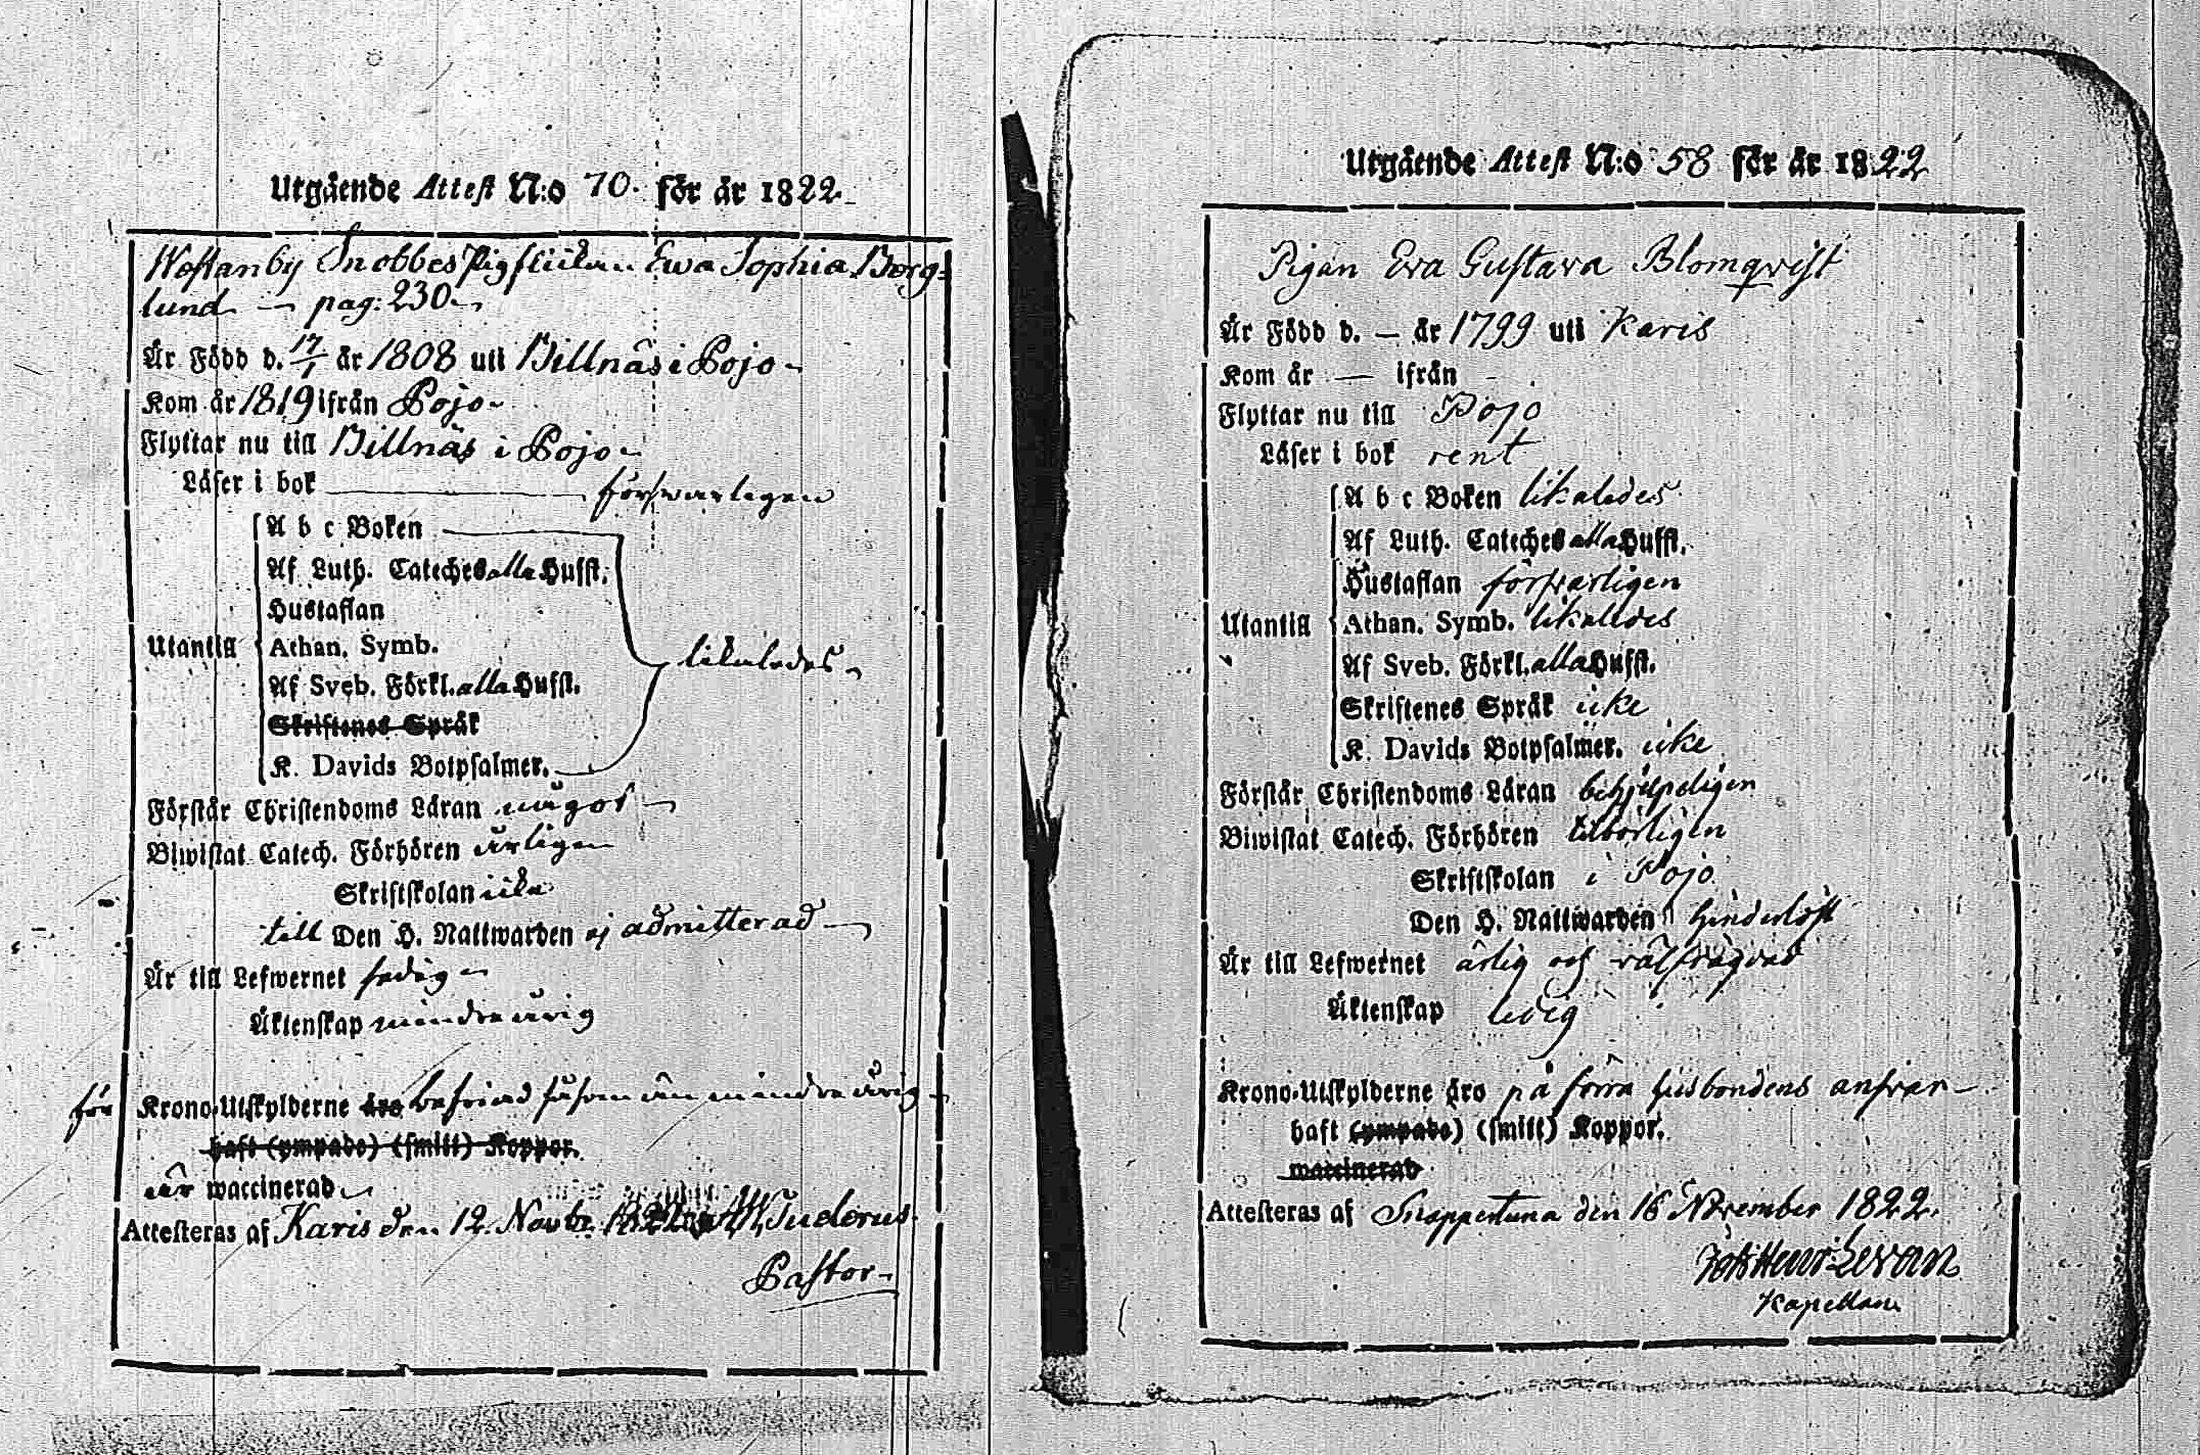 Utgående Attest N:o 70. för år 1822.
Westanby Snobbes Pigflickan Ewa Sophia Berg=
lund — pag: 230.
Är Född d. 17/1 år 1808 uti Billnäs i Pojo
Kom år 1819 ifrån Pojo
Flyttar nu till Billnäs i Pojo
Läser i bok förswarligen
A b c Boken
Af Luth. Cateches alla Hufst.
Hustaflan
Utantill Athan. Symb. likaledes
Af Sveb. Förkl. alla Hufst.
Skriftenes Språk
K. Davids Botpsalmer.
Förstår Christendoms Läran något
Biwistat Catech. Förhören årligen
Skriftskolan icke
till Den H. Nattwarden ej admitterad
Är till Lefwernet sedig
Äktenskap minderårig
för Krono-Utskylderne äro befriad såsom än minderårig
haft (ympade) (smitt) Koppor.
är waccinerad
Attesteras af Karis den 12. Novbr. 1822 Tuderus
Pastor
Utgående Attest N:o 58 för år 1822
Pigan Eva Gustava Blomqvist
Är Född d. — år 1799 uti Karis
Kom år — ifrån
Flyttar nu till Pojo
Läser i bok rent
A b c Boken likaledes
Af Luth. Cateches alla Hufst.
Hustaflan försvarligen
Utantill Athan. Symb. likaledes
Af Sveb. Förkl. alla Hufst.
Skriftenes Språk icke
K. Davids Botpsalmer. icke
Förstår Christendoms Läran behjelpeligen
Biwistat Catech. Förhören tilbörligen
Skriftskolan i Pojo
Den H. Nattwarden hinderlöst
Är till Lefwernet ärlig och välfrägdad
Äktenskap ledig
Krono-Utskylderne äro på förra husbondens ansvar
haft (ympade) (smitt) Koppor.
waccinerad
Attesteras af Snappertuna den 16 November 1822.
Levan
Kapellan